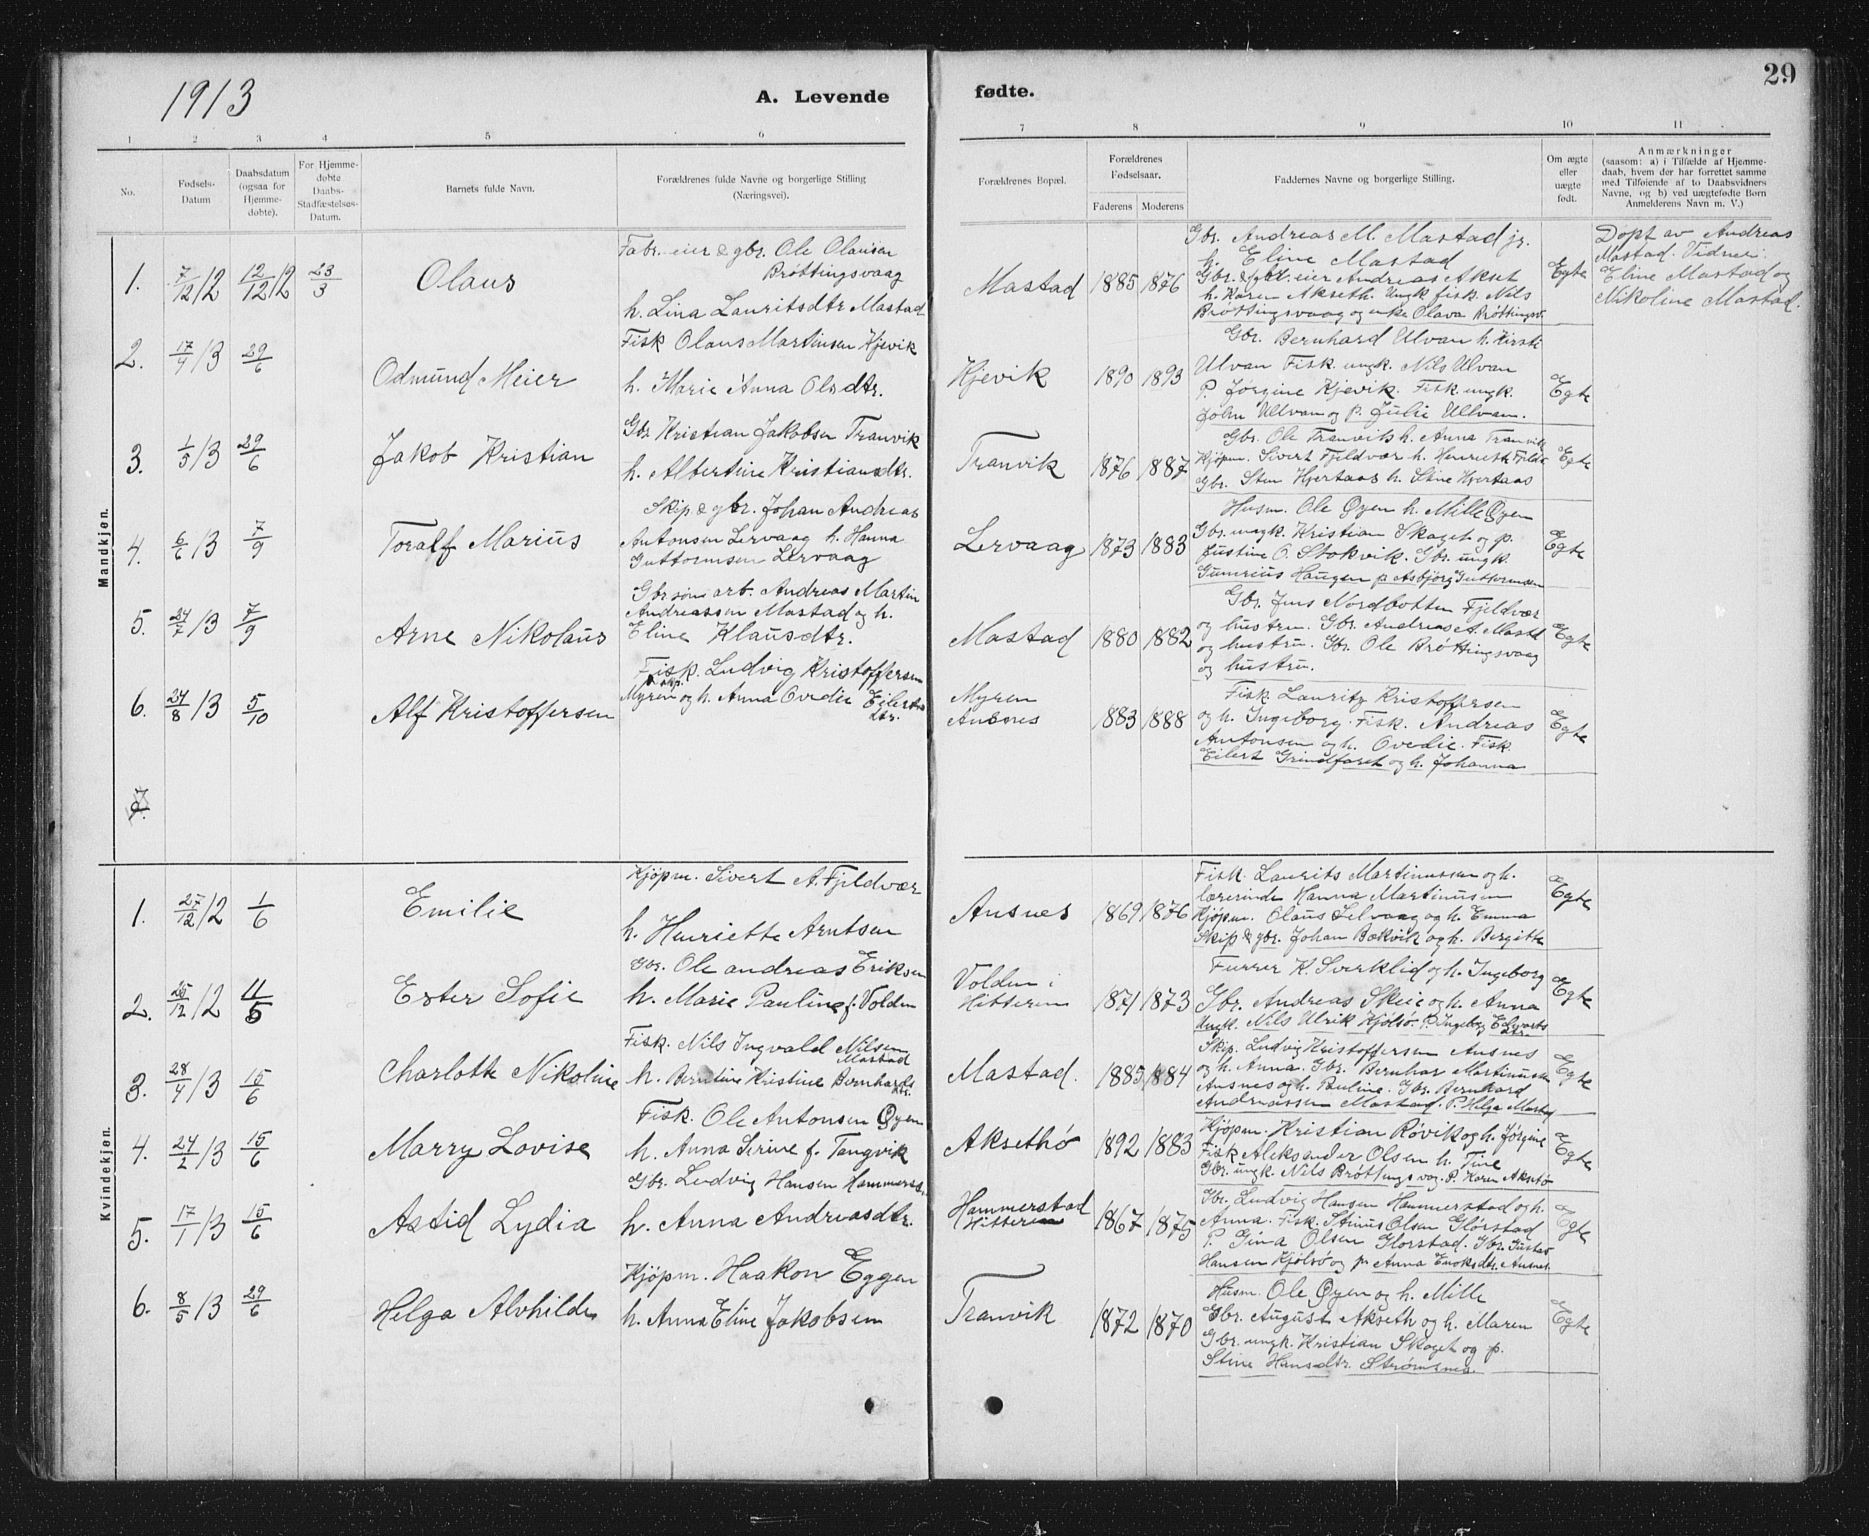 1913
A. Levende
fødte.
29
1 2 3 4 5 6 7 8 9 10 11
No.
Fødsels-
Datum
Daabsdatum
(ogsaa for
Hjemme-
døbte).
For Hjemme-
døbte
Daabs-
Stadfæstelses-
Datum.
Barnets fulde Navn.
Forældrenes fulde Navne og borgerlige Stilling
(Næringsvei).
Forældrenes Bopæl.
Forældrenes
Fødselsaar.
Faderens Moderens
Faddernes Navne og borgerlige Stilling.
Om ægte
eller
uægte
født.
Anmærkninger
(saasom: a) i Tilfælde af Hjemme-
daab, hvem der har forrettet samme
med Tilføiende af to Daabsvidners
Navne, og b) ved uægtefødte Børn
Anmelderens Navn m. V.)
Mandkjøn.
1. 7/12 12 12/12 12 23/3 Olaus
Fabr. eier & gbr. Ole Olausen
Brøttingsvaag
h. Lina Lauritsdtr Mastad
Mastad 1885 1876
Gbr. Andreas M. Mastad jr.
h. Eline Mastad
Gbr. & eier Andreas Akset
h. Karen Akseth. Ungk. fisk. Nils
Brøttingsvaag og enke Olava Brøttingsv.
Egte
Døpt av Andreas
Mastad. Vidner:
Eline Mastad og
Nikoline Mastad.
2. 17/4 13 29/6 Odmund Meier
Fisk Olaus Martinsen Kjevik
h. Marie Anna Olsdtr.
Kjevik 1890 1893
Gbr. Bernhard Ulvan h. Kirsti
Ulvan Fisk. ungk. Nils Ulvan
P. Jørgine Kjevik. Fisk. ungk.
John Ullvan og p. Julie Ullvan.
Egte
3. 1/5 13 29/6 Jakob Kristian
Gbr Kristian Jakobsen Tranvik
h. Albertine Kristiansdtr.
Tranvik 1876 1887
Gbr. Ole Tranvik h. Anna Tranvik
Kjøpm. Sivert Fjeldvær h. Henriette Fjeldv
Gbr. Sten Hjertaas h. Stine Hjertaas
Egte
4. 6/6 13 7/9 Toralf Marius
Skip & gbr. Johan Andreas
Antonsen Lervaag h. Hanna
Guttormsen Lervaag
Lervaag 1873 1883
Husm. Ole Øyen h. Mille Øyen
Gbr. ungk. Kristian Skaget og p.
Justine O. Stokvik. Gbr. ungk.
Gunerius Haugen p. Asbjørg Guttormsen
Egte
5. 24/7 13 7/9 Arne Nikolaus
Gbrsøn arb. Andreas Martin
Andreassen Mastad og h.
Eline Klausdtr.
Mastad 1880 1882
Gbr. Jens Nordbotten Fjeldvær
og hustru. Gbr. Andreas A. Mastd
og hustru. Gbr. Ole Brøttingsvaag
og hustru.
Egte
6. 24/8 13 5/10 Alf Kristoffersen
Fisk. Ludvig Kristoffersen
Myren og h. Anna Ovedie Eilerts
dtr.
Myren
Ansnes 1883 1888
Fisk Lauritz Kristoffersen
og h. Ingeborg. Fisk. Andreas
Antonsen og h. Ovedie. Fisk
Eilert Grindfaret og h. Johanna
Egte
7.
Kvindekjøn.
1. 27/12 12 1/6 Emilie
Kjøpm. Sivert A. Fjeldvær
h. Henriette Arntsen
Ansnes 1869 1876
Fisk. Laurits Martinussen og h.
lærerinde Hanna Martinusen
Kjøpm. Olaus Selvaag og h. Emma
Skip & gbr. Johan Bækvik og h. Bergitte
Egte
2. 25/12 12 11/5 Ester Sofie
Gbr. Ole andreas Eriksen
h. Marie Pauline f. Volden
Volden i
Hitteren 1871 1873
Furrer K. Sverklid og h. Ingeborg
Gbr. Andreas Skeie og h. Anna
Ungk. Nils Ulrik Kjølsø. P. Ingeborg Edvarts
dtr.
Egte
3. 28/4 13 15/6 Charlotte Nikoline
Fisk. Nils Ingvald Nilsen
Mastad
h. Berntine Kristine Bernhards
dtr.
Mastad. 1885 1884
Skip. Ludvig Kristoffersen Ansnes
og h. Anna. Gbr. Bernhar Martinussen
Ansnes og h. Pauline. Gbr. Bernhard
Andreassen Mastad. P. Helga Mastad
Egte
4. 24/2 13 15/6 Marry Lovise
Fisk. Ole Antonsen Øyen
h. Anna Serine f. Tangvik
Aksethø 1892 1883
Kjøpm. Kristian Røvik og h. Jørgine
Fisk Aleksander Olsen h. Tine
Gbr. ungk. Nils Brøttingsvag. P. Karen Aksetø
Egte
5. 17/1 13 15/6 Astid Lydia
Gbr. Ludvig Hansen Hammerst.
h. Anna Andreasdtr.
Hammerstad
Hitteren 1867 1875
Gbr. Ludvig Hansen Hammerstad og h.
Anna. Fisk. Stinus Olsen Glørstad
P. Gina Olsen Glorstad. Gbr. Gustav
Hansen Kjølsø og p. Anna Enoksdtr. Ansnes
Egte
6. 8/5 13 29/6 Helga Alvhilde
Kjøpm. Haakon Eggen
h. Anna Eline Jakobsen
Tranvik 1872 1870
Husm. Ole Øyen og h. Mille
Gbr. August Akseth og h. Maren
Gbr. ungk. Kristian Skaget og p.
Stine Hansdtr. Strømsnes
Egte